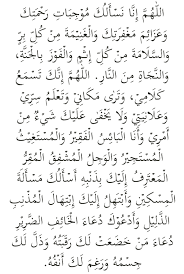 اللَّهُمَّ إِنَّا نَسْأَلُكَ مُوجِبَاتِ رَحْمَتِكَ
وَعَزَائِمَ مَغْفِرَتِكَ وَالْغَنِيْمَةَ مِنْ كُلِّ بِرٍّ
وَالسَّلَامَةَ مِنْ كُلِّ إِثْمٍ وَالْفَوْزَ بِالْجَنَّةِ،
وَالنَّجَاةَ مِنَ النَّارِ. اللَّهُمَّ إِنَّكَ تَسْمَعُ
كَلَامِيْ، وَتَرَى مَكَانِيْ وَتَعْلَمُ سِرِّيْ
وَعَلَانِيَتِيْ وَلَا يَخْفَى عَلَيْكَ شَيْءٌ مِنْ
أَمْرِيْ وَأَنَا الْبَائِسُ الْفَقِيْرُ وَالْمُسْتَغِيْثُ
الْمُسْتَجِيْرُ وَالْوَجِلُ الْمُشْفِقُ الْمُقِرُّ
الْمُعْتَرِفُ إِلَيْكَ بِذَنْبِهِ أَسْأَلُكَ مَسْأَلَةَ
الْمِسْكِيْنِ وَأَبْتَهِلُ إِلَيْكَ إِبْتِهَالَ الْمُذْنِبِ
الذَّلِيْلِ وَأَدْعُوْكَ دُعَاءَ الْخَائِفِ الضَّرِيْرِ
دُعَاءَ مَنْ خَضَعَتْ لَكَ رَقَبَتُهُ وَذَلَّ لَكَ
جِسْمُهُ وَرَغِمَ لَكَ أَنْفُهُ.